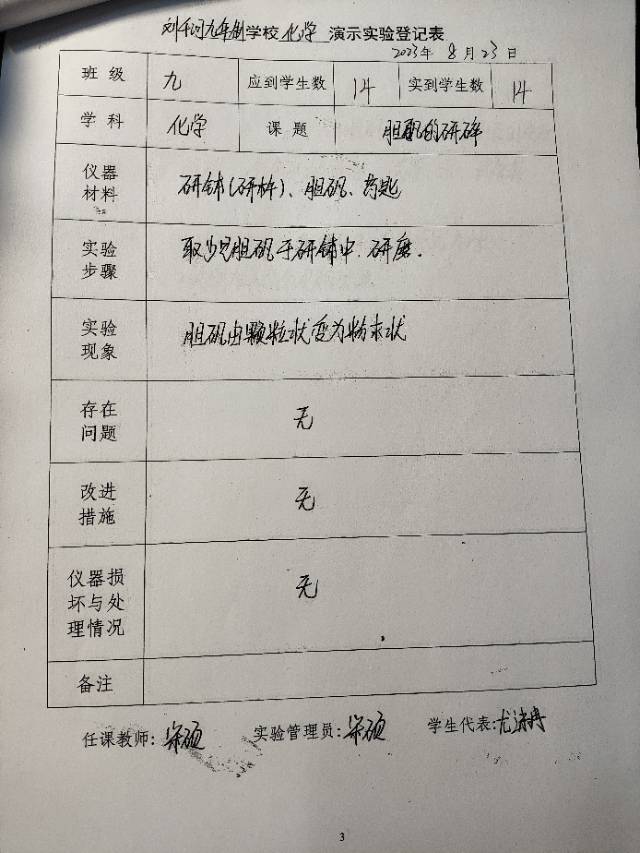 刘千河九年制学校化学演示实验登记表
2023年 8月23日
班级 九 应到学生数 14 实到学生数 14
学科 化学 课题 胆矾的研碎
仪器
材料
研钵(研杵)、胆矾、药匙
实验
步骤
取少量胆矾于研钵中研磨.
实验
现象
胆矾由颗粒状变为粉末状
存在
问题
无
改进
措施
无
仪器损
坏与处
理情况
无
备注
任课教师:宋硕 实验管理员:宋硕 学生代表:尤
3